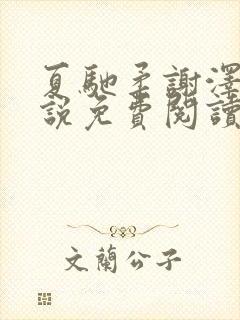 夏馳柔謝澤
説免費閱讀
文蘭公子